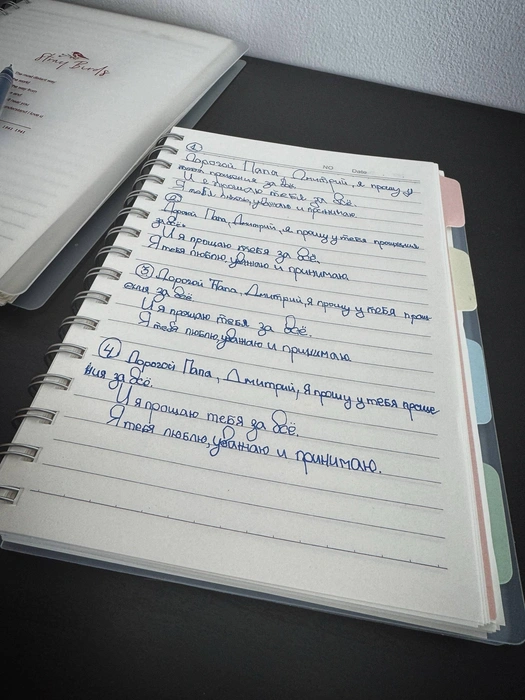 Stray Birds
NO Date
①
Дорогой Папа, Дмитрий, я прошу у
тебя прощения за всё.
И я прощаю тебя за всё.
Я тебя люблю, уважаю и принимаю.
②
Дорогой Папа, Дмитрий, я прошу у тебя прощения
за всё.
И я прощаю тебя за всё.
Я тебя люблю, уважаю и принимаю
③ Дорогой Папа, Дмитрий, я прошу у тебя прощ-
ения за всё.
И я прощаю тебя за всё.
Я тебя люблю, уважаю и принимаю
④ Дорогой Папа, Дмитрий, Я прошу у тебя проще
ния за всё.
И я прощаю тебя за всё.
Я тебя люблю, уважаю и принимаю.